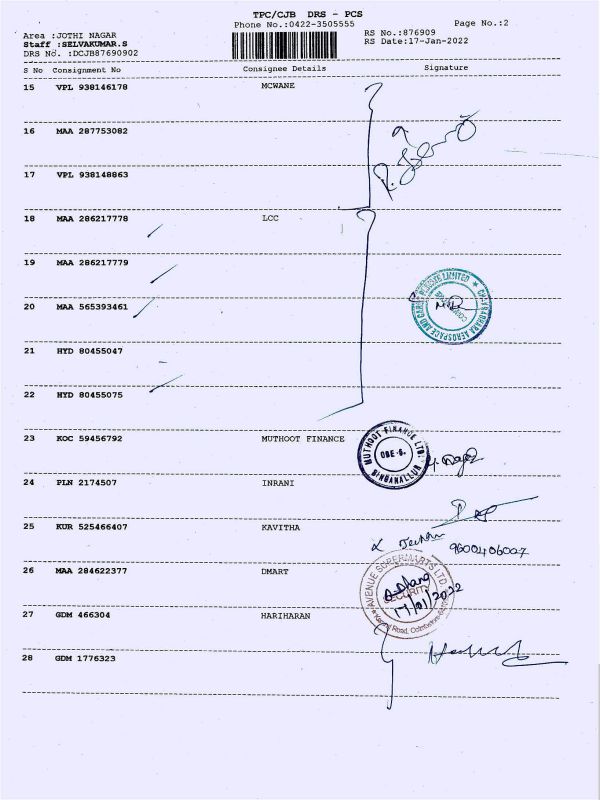 TPC/CJB DRS - PCS
Phone No.:0422-3505555
Page No.:2
Area :JOTHI NAGAR
RS No.:876909
Staff :SELVAKUMAR.S
RS Date:17-Jan-2022
DRS No. :DCJB87690902
S No Consignment No Consignee Details Signature
15 VPL 938146178 MCWANE
16 MAA 287753082
17 VPL 938148863
18 MAA 286217778 LCC
19 MAA 286217779
20 MAA 565393461
21 HYD 80455047
22 HYD 80455075
23 KOC 59456792 MUTHOOT FINANCE
MUTHOOT FINANCE LTD.
SINGANALLUR
24 PLN 2174507 INRANI
25 KUR 525466407 KAVITHA
9600406007
26 MAA 284622377 DMART
AVENUE SUPERMARTS LTD.
SECURITY
17/01/2022
Road, Coimbatore
27 GDM 466304 HARIHARAN
28 GDM 1776323